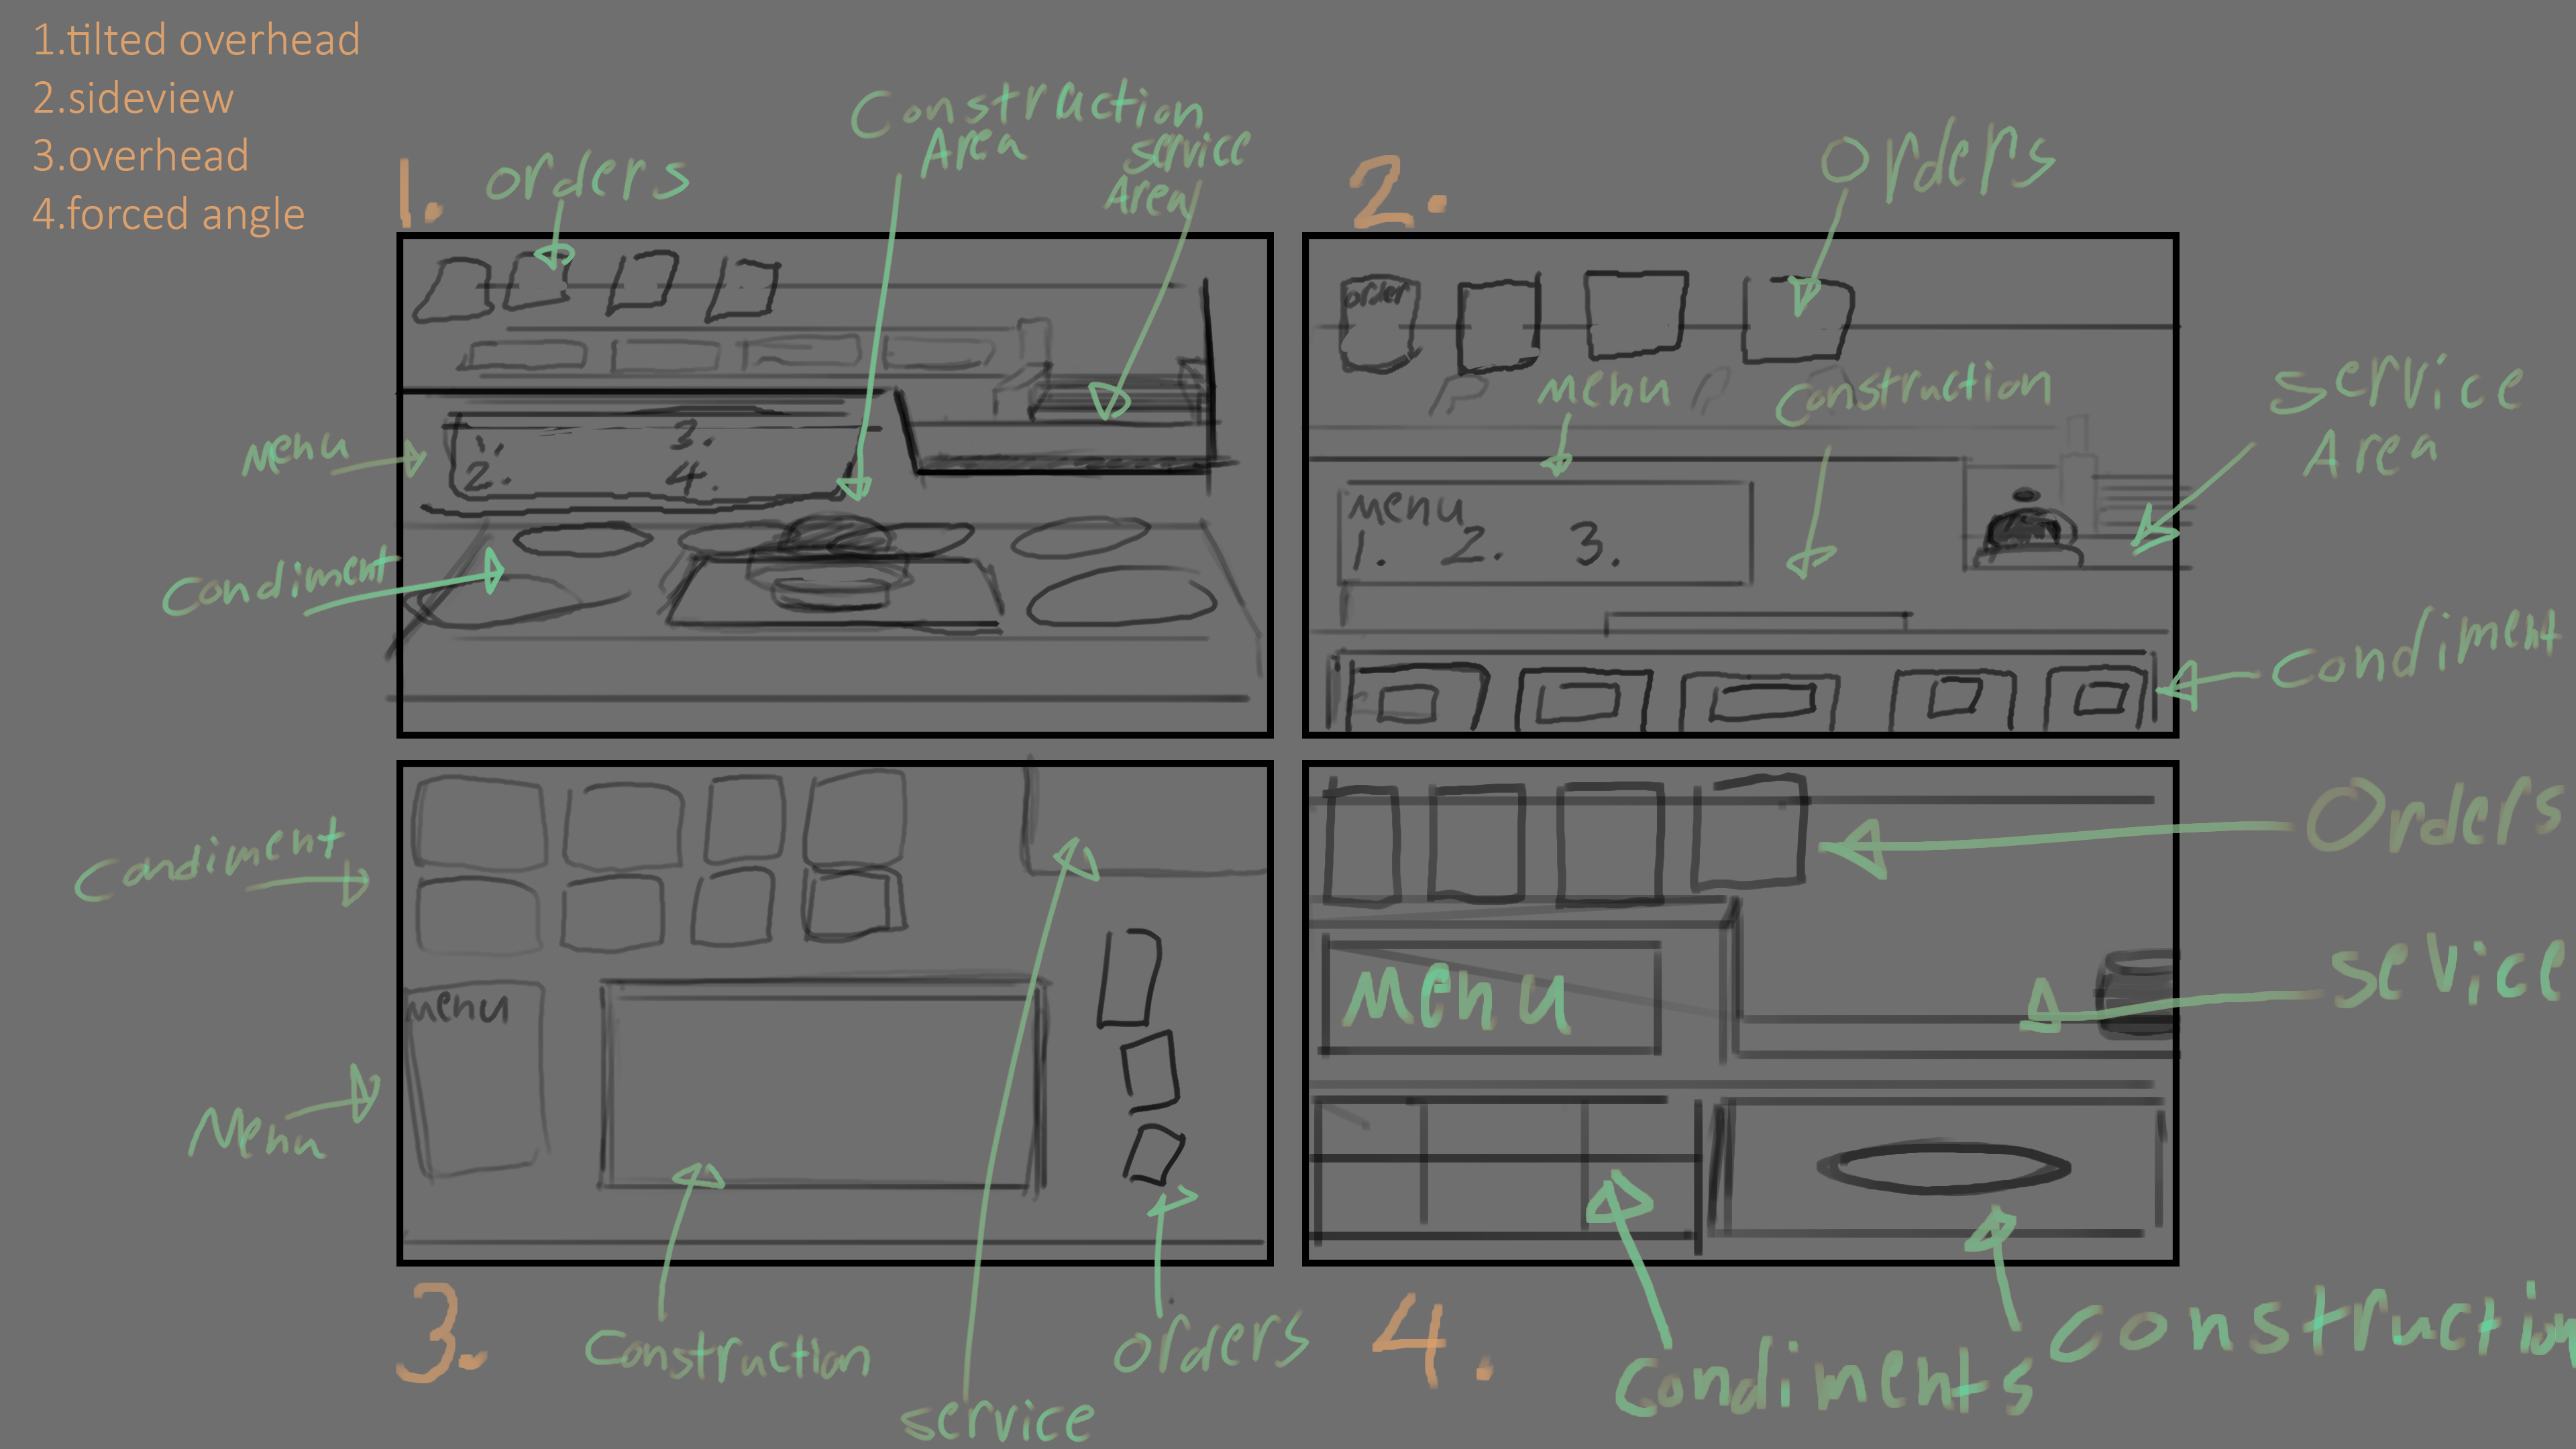 1.tilted overhead
2.sideview
3.overhead
4.forced angle
1.
orders
Construction
Area
service
Area
menu
Condiment
1.
2.
3.
4.
2.
Orders
order
menu
Construction
service
Area
menu
1. 2. 3.
Condiment
Condiment
menu
Menu
3.
Construction
service
orders
Orders
Menu
sevice
4.
Condiments
Construction